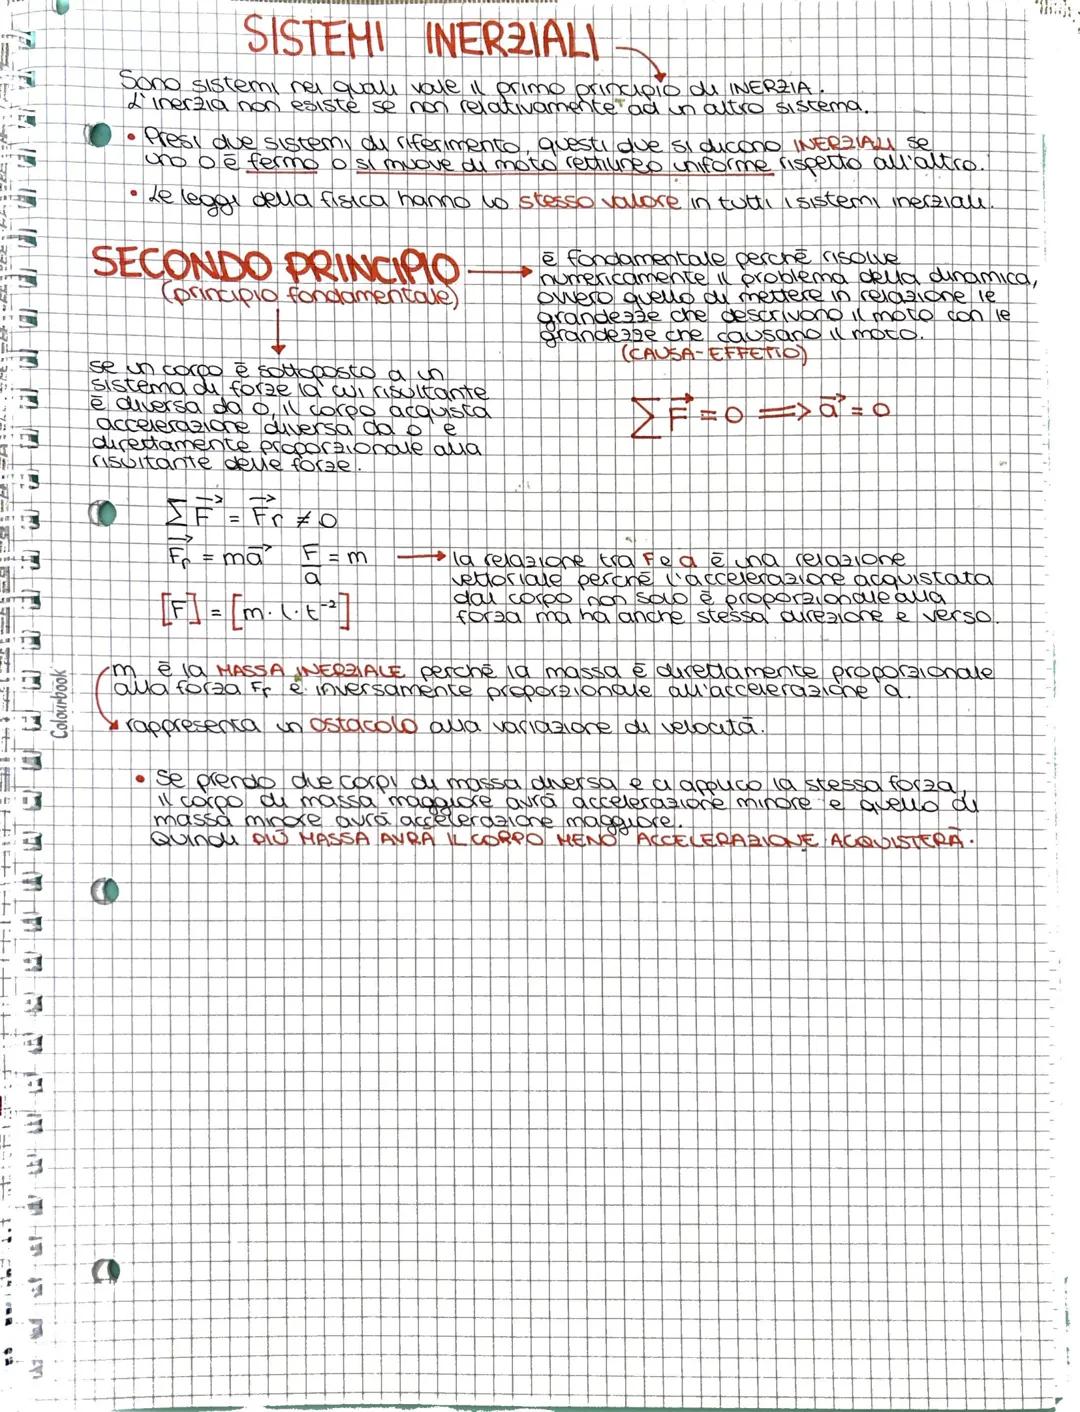 SISTEMI INERZIALI
Sono sistemi nei quali vale il primo principio di INERZIA.
L'inerzia non esiste se non relativamente ad un altro sistema.
• Presi due sistemi di riferimento, questi due si dicono INERZIALI se
uno o è fermo o si muove di moto rettilineo uniforme rispetto all'altro.
• Le leggi della fisica hanno lo stesso valore in tutti i sistemi inerziali.
SECONDO PRINCIPIO
(principio fondamentale)
è fondamentale perchè risolve
numericamente il problema della dinamica,
ovvero quello di mettere in relazione le
grandezze che descrivono il moto con le
grandezze che causano il moto.
(CAUSA-EFFETTO)
se un corpo è sottoposto a un
sistema di forze la cui risultante
è diversa da 0, il corpo acquista
accelerazione diversa da 0 e
direttamente proporzionale alla
risultante delle forze.
∑F⃗ = 0 ⟹ a⃗ = 0
∑F⃗ = F⃗r ≠ 0
F⃗r = ma⃗ F/a = m
[F] = [m · l · t⁻²]
la relazione tra F e a è una relazione
vettoriale perchè l'accelerazione acquistata
dal corpo non solo è proporzionale alla
forza ma ha anche stessa direzione e verso.
m è la MASSA INERZIALE perchè la massa è direttamente proporzionale
alla forza Fr e inversamente proporzionale all'accelerazione a.
rappresenta un ostacolo alla variazione di velocità.
• Se prendo due corpi di massa diversa e ci applico la stessa forza,
il corpo di massa maggiore avrà accelerazione minore e quello di
massa minore avrà accelerazione maggiore.
Quindi PIÙ MASSA AVRÀ IL CORPO MENO ACCELERAZIONE ACQUISTERÀ.
Colourbook